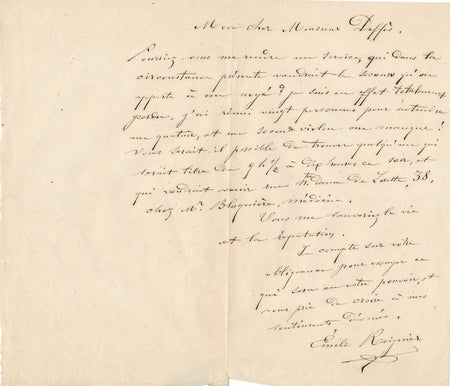 Mon cher Monsieur Deffès,
Pourriez-vous me rendre un service, qui dans la
circonstance présente vaudrait le secours qu'on
apporte à un noyé ? je suis en effet totalement
perdu, j'ai réuni vingt personnes pour entendre
un quatuor, et un second violon me manque !
Vous serait-il possible de trouver quelqu'un qui
serait libre de 9 h 1/2 à dix heures ce soir, et
qui voudrait venir rue N. Dame de Lorette, 38,
chez Mr. Blagnière, médecin.
Vous me sauveriez la vie
et la réputation.
Je compte sur votre
obligeance pour essayer ce
qui sera en votre pouvoir, et
vous prie de croire à mes
sentiments dévoués.
Émile